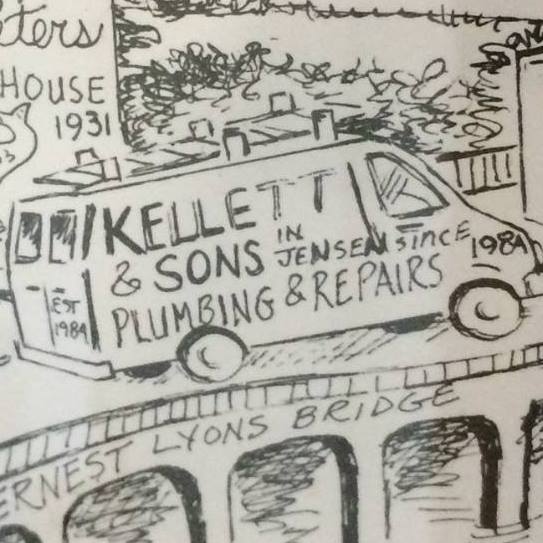 HOUSE
1931
KELLETT
& SONS IN JENSEN since 1984
PLUMBING & REPAIRS
EST
1984
ERNEST LYONS BRIDGE